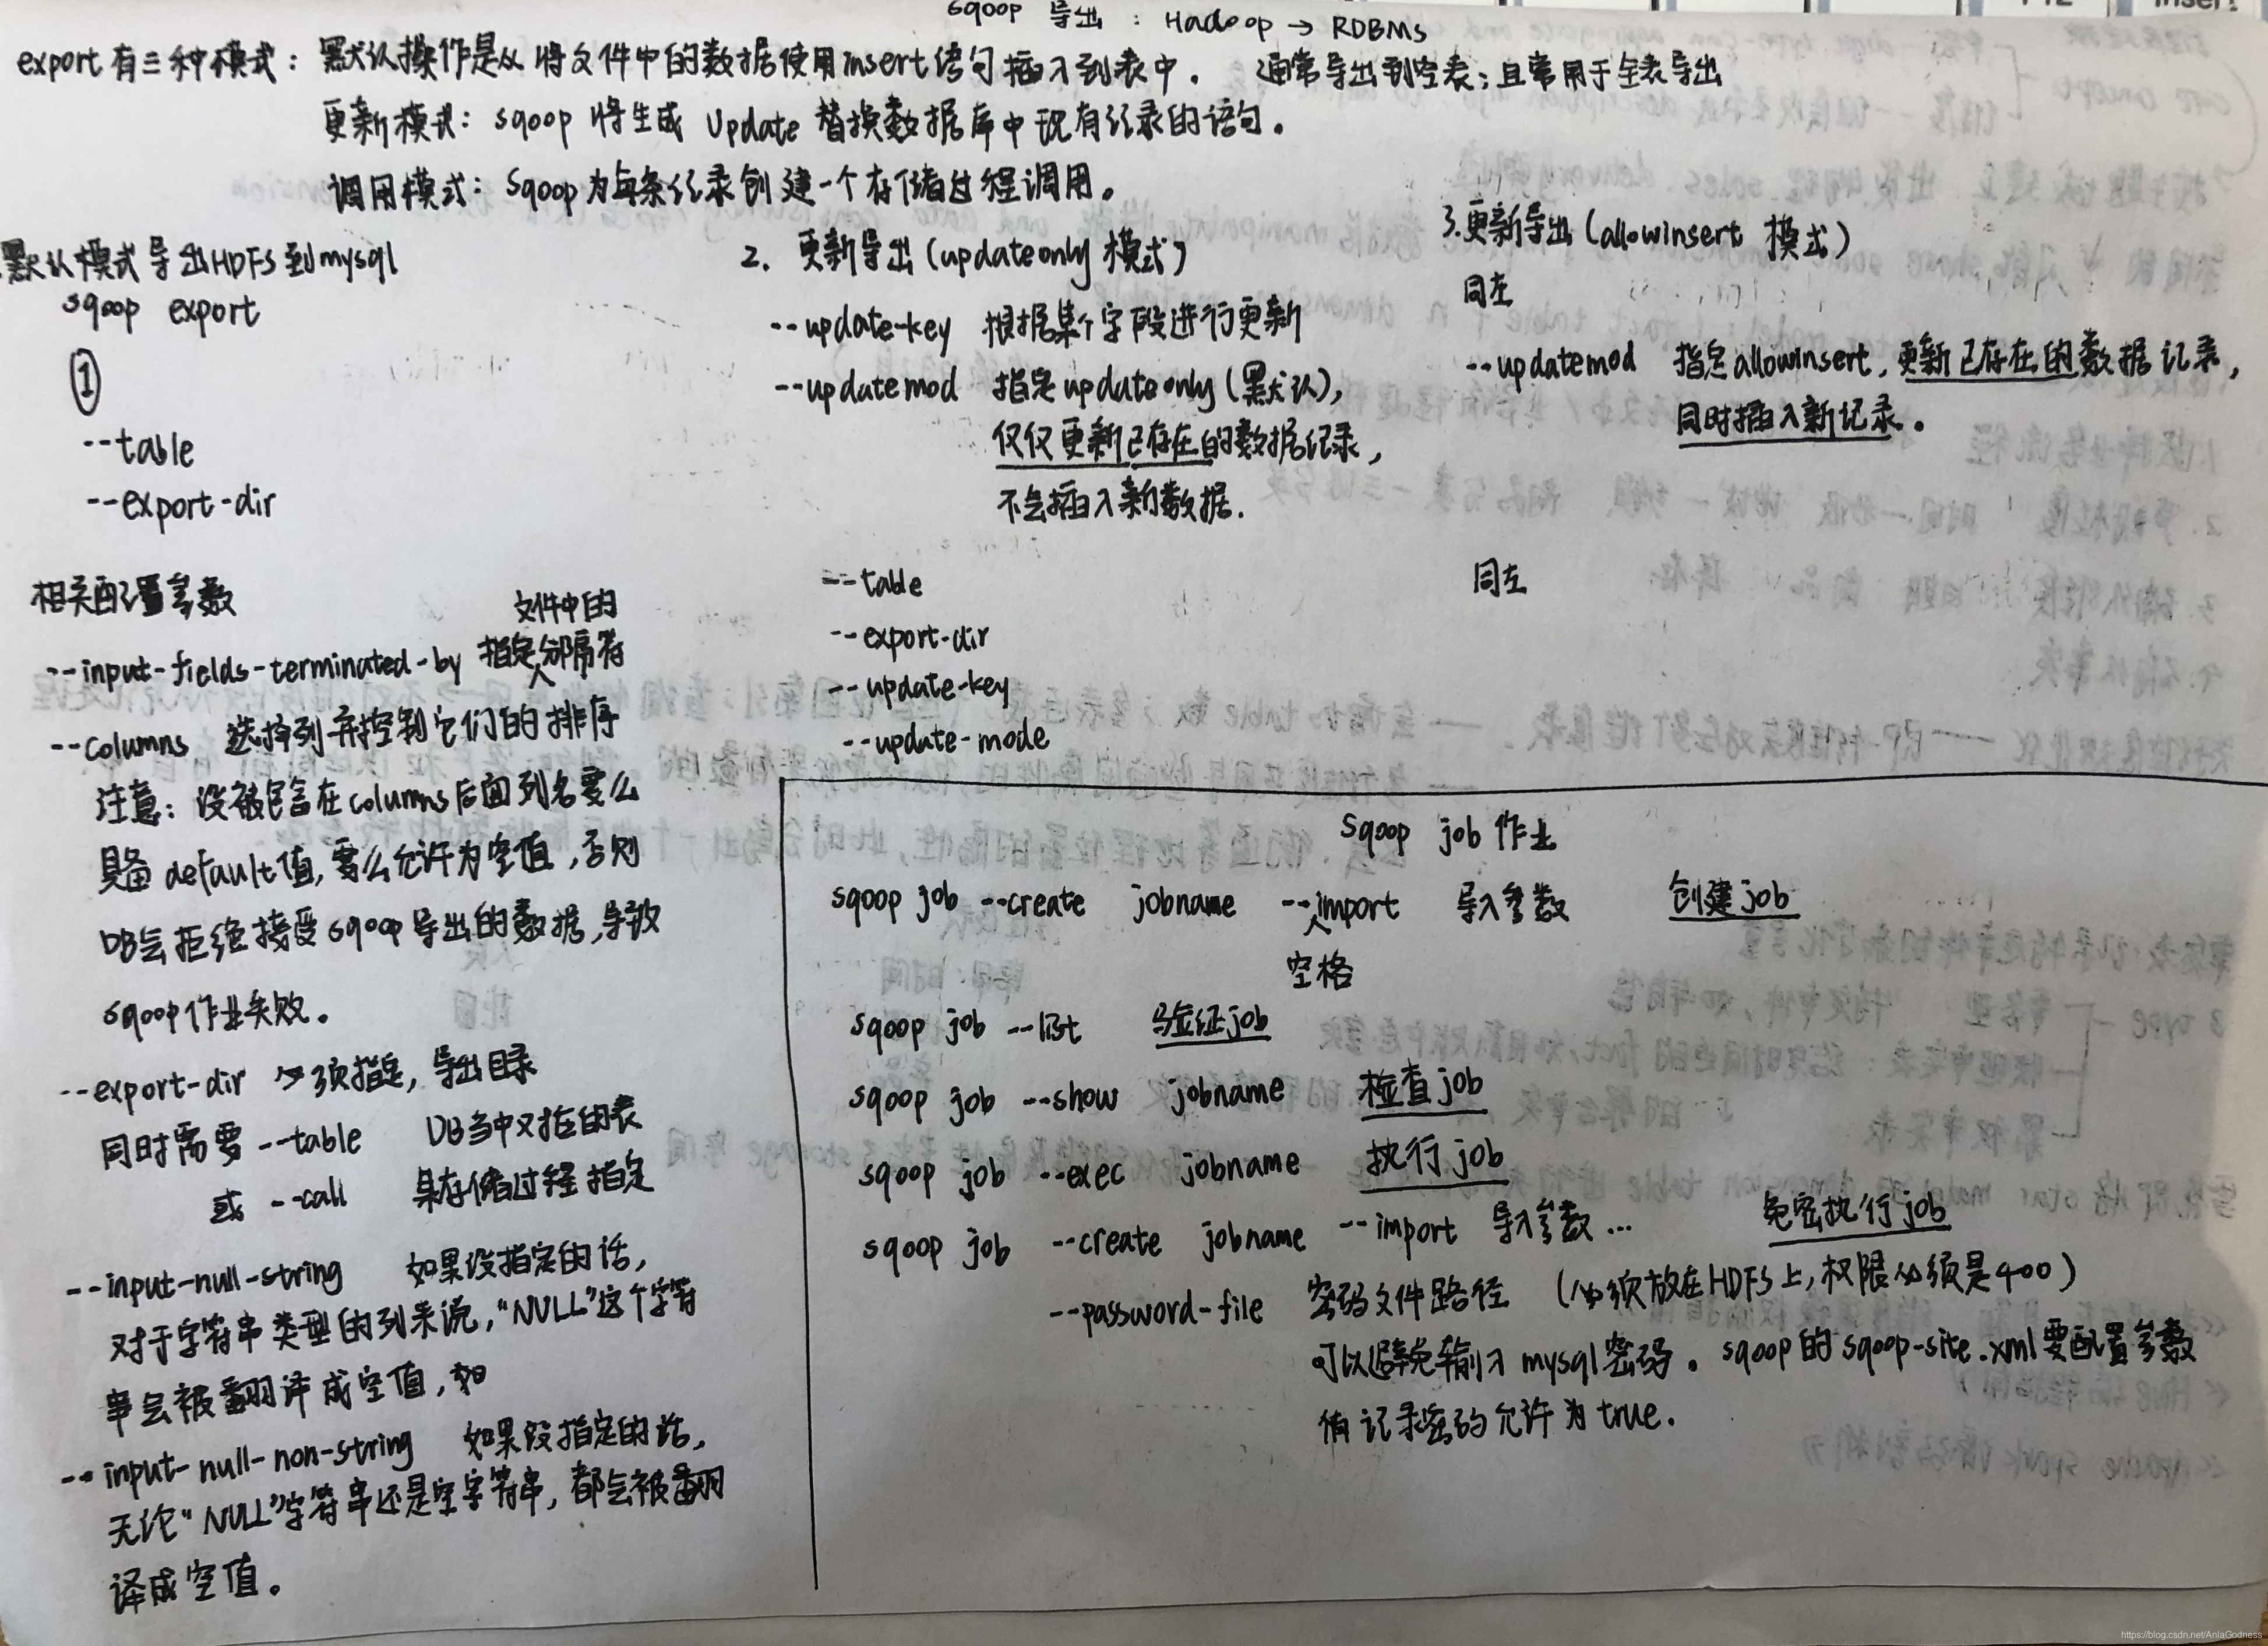 sqoop 导出 : Hadoop → RDBMS
export有三种模式: 默认操作是从将文件中的数据使用insert语句插入到表中. 通常导出到空表;且常用于全表导出
更新模式: sqoop 将生成 update 替换数据库中现有记录的语句。
调用模式: sqoop为每条记录创建一个存储过程调用。
默认模式导出HDFS到mysql
sqoop export
①
--table
--export-dir
相关配置参数
--input-fields-terminated-by 指定文件中的分隔符
--columns 选择列并控制它们的排序
注意: 没被包含在columns后面列名要么
具备default值,要么允许为空值,否则
DB会拒绝接受sqoop导出的数据,导致
sqoop作业失败。
--export-dir 必须指定,导出目录
同时需要 --table DB当中对应的表
或 --call 某存储过程指定
--input-null-string 如果没指定的话,
对于字符串类型的列来说,"NULL"这个字符
串会被翻译成空值,如
--input-null-non-string 如果没指定的话,
无论"NULL"字符串还是空字符串,都会被翻
译成空值。
2. 更新导出(updateonly模式)
--update-key 根据某个字段进行更新
--updatemod 指定updateonly(默认),
仅仅更新已存在的数据记录,
不会插入新数据.
--table
--export-dir
--update-key
--update-mode
3.更新导出(allowinsert 模式)
同左
--updatemod 指定allowinsert,更新已存在的数据记录,
同时插入新记录.
同左
sqoop job 作业
sqoop job --create jobname --import 导入参数 创建job
空格
sqoop job --list 验证job
sqoop job --show jobname 检查job
sqoop job --exec jobname 执行job
sqoop job --create jobname --import 导入参数... 免密执行job
--password-file 密码文件路径 (必须放在HDFS上,权限必须是400)
可以避免输入mysql密码。sqoop的sqoop-site.xml要配置参数
有记录密码允许为true.
https://blog.csdn.net/AnlaGodness